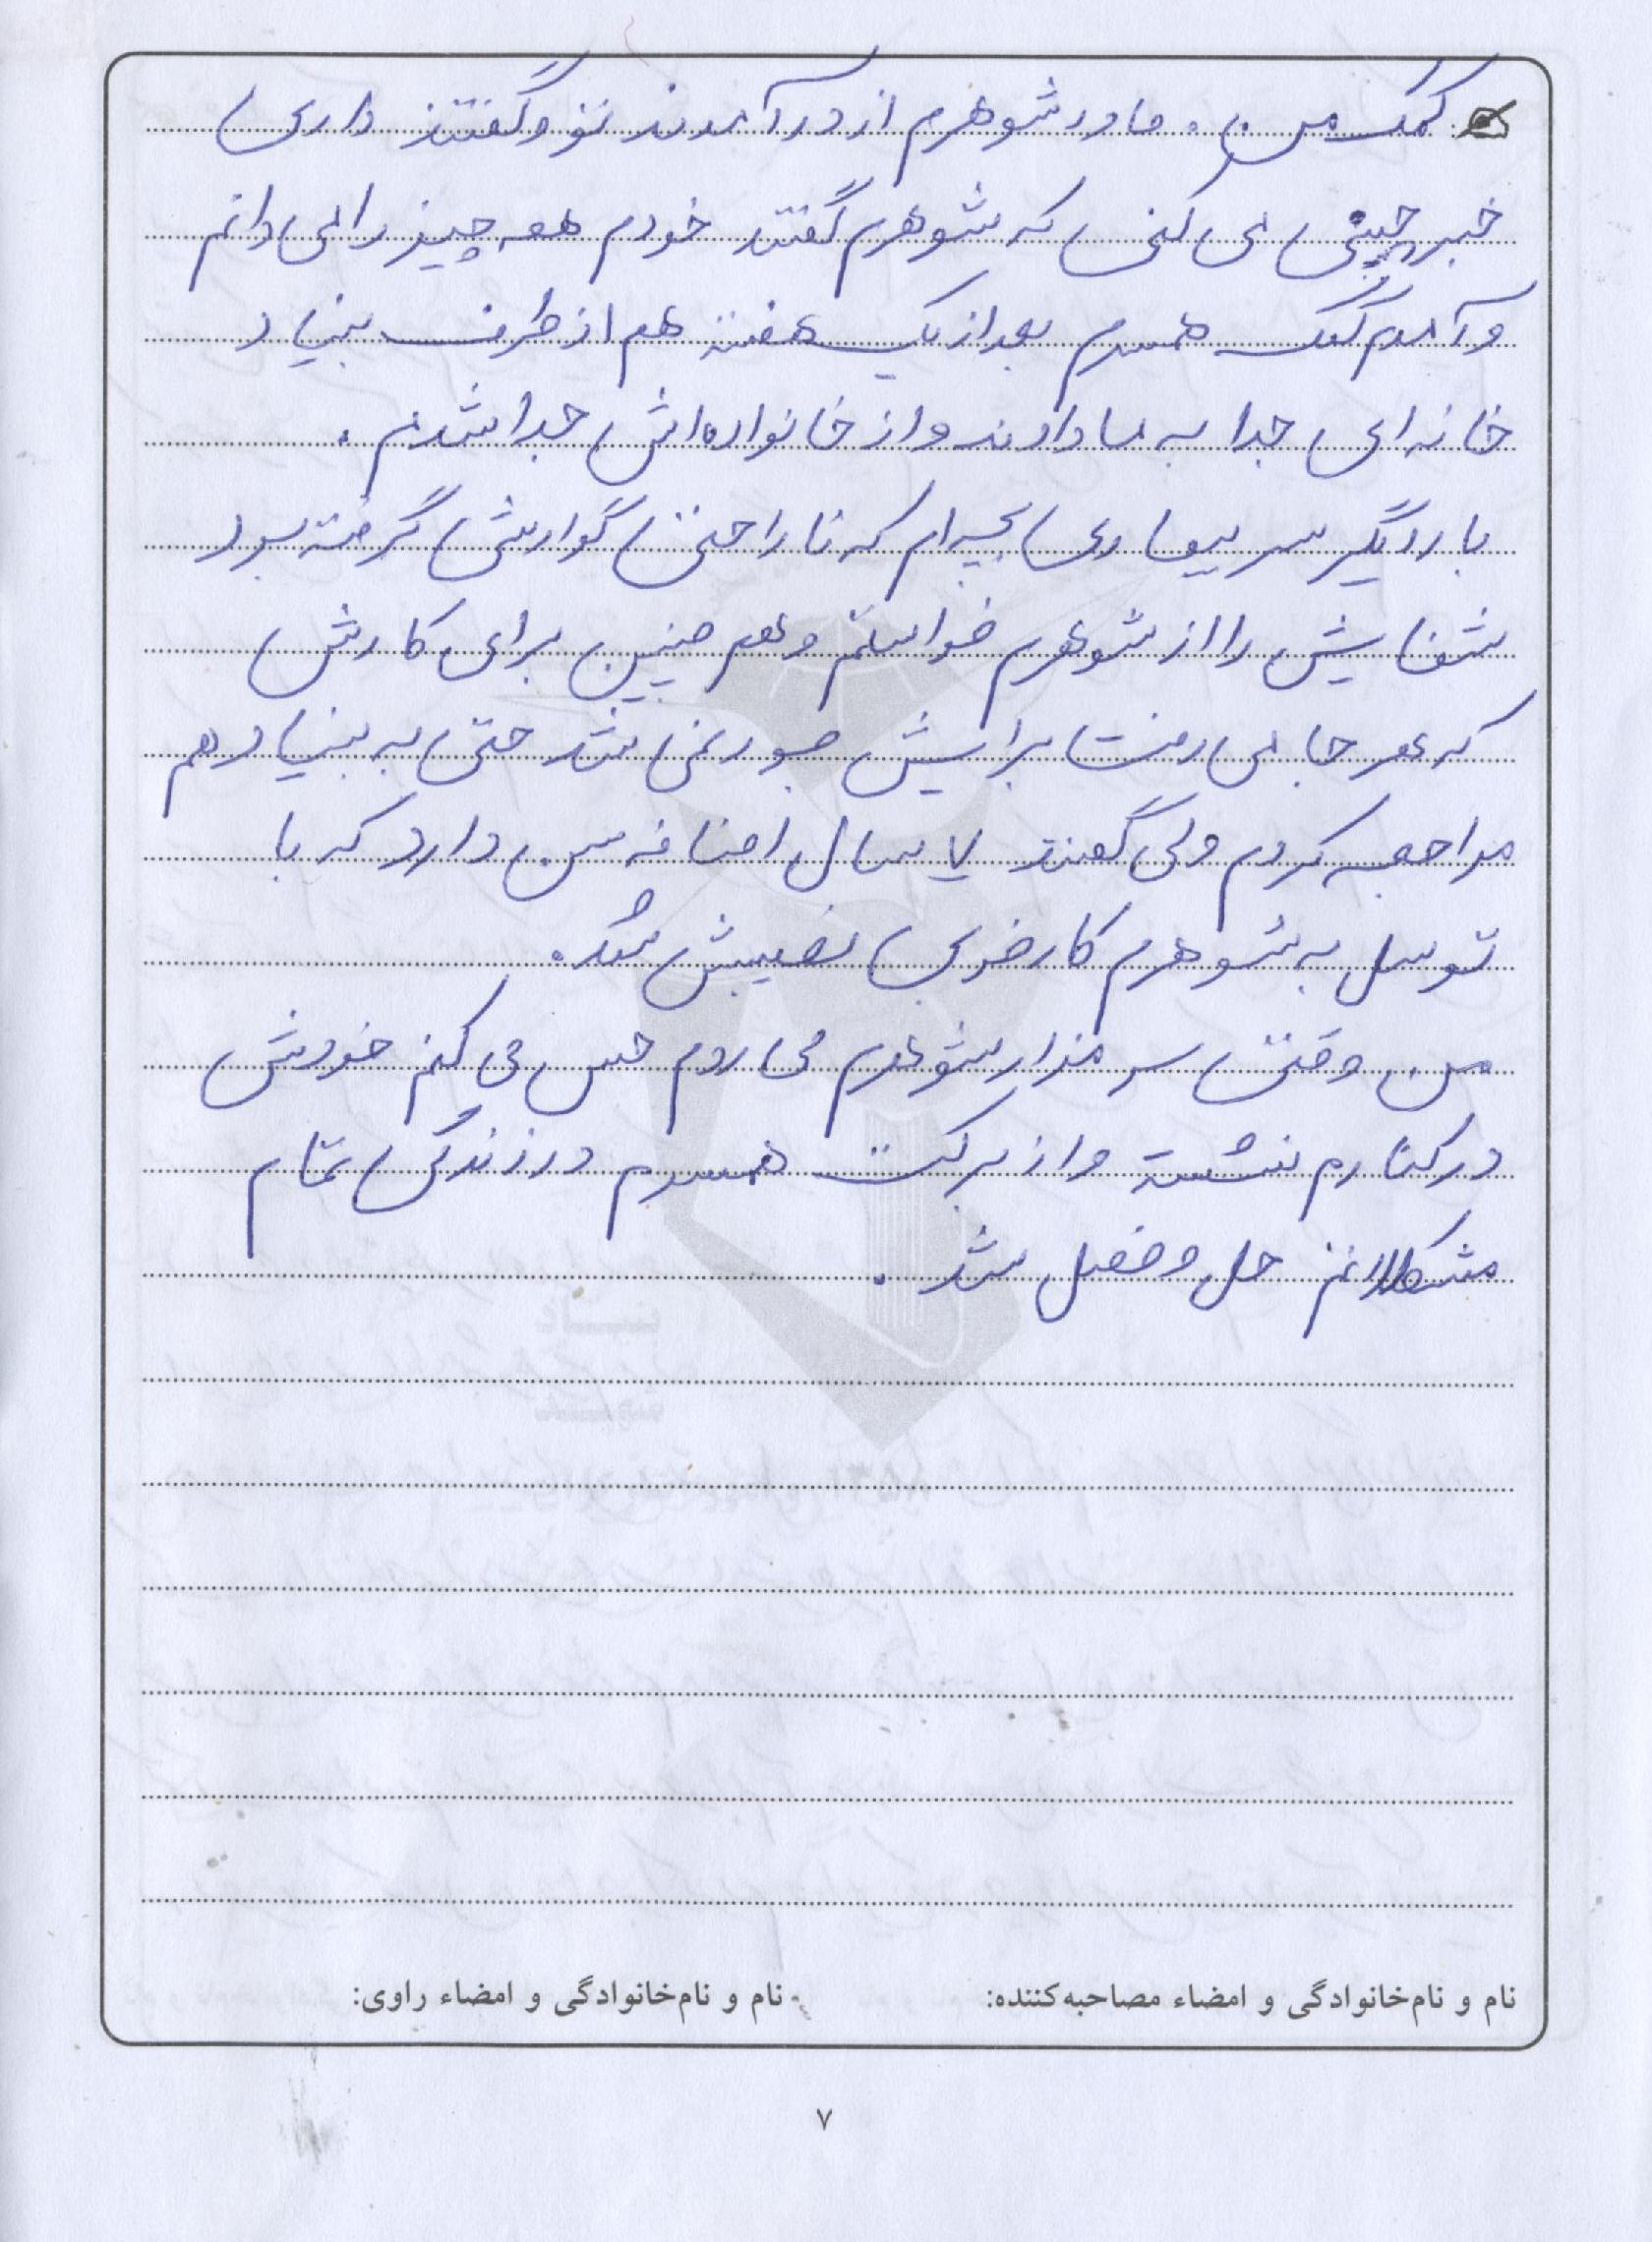 کمک من. مادر شوهرم از در آمدند تو و گفتند داری
خبر چینی می کنی که شوهرم گفتند خودم همه چیز را می دانم
و آمدم کمک همسرم بعد از یک هفته هم از طرف بنیاد
خانه ای جدا به ما دادند و از خانواده اش جدا شدیم.
بار دیگر سر بیماری بچه ام که ناراحتی گوارشی گرفته بود
شفایش را از شوهرم خواستم و هم چنین برای کارش
که هر جا می رفت برایش جور نمی شد حتی به بنیاد هم
مراجعه کردم ولی گفتند ۷ سال اضافه سن دارد که با
توسل به شوهرم کار خوبی نصیبش شد.
من وقتی سر مزار شوهرم می روم حس می کنم خودش
در کنارم نشسته و از برکت همسرم در زندگی تمام
مشکلاتم حل و فصل شد.
نام و نام‌خانوادگی و امضاء مصاحبه‌کننده: نام و نام‌خانوادگی و امضاء راوی:
۷